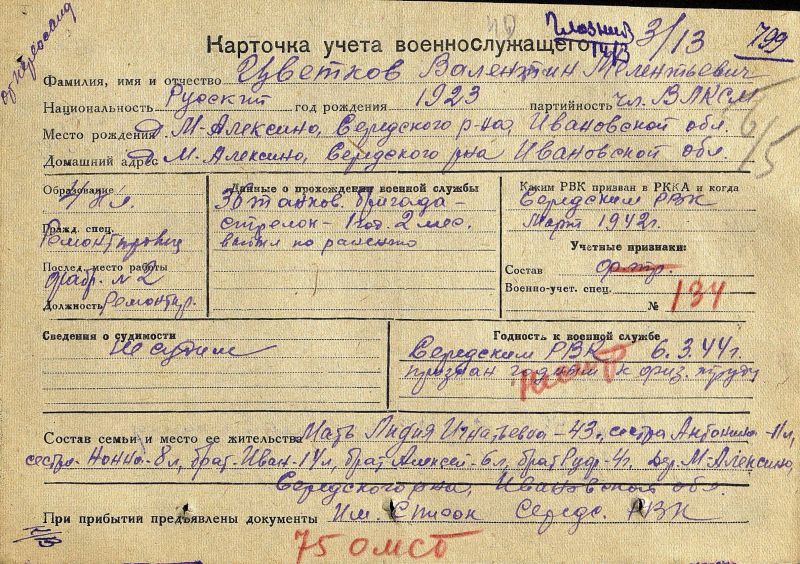 3/13
799
Карточка учета военнослужащего
Фамилия, имя и отчество Цветков Валентин Мелентьевич
Национальность Русский год рождения 1923 партийность Чл. ВЛКСМ
Место рождения д. М-Алексино, Середского р-на, Ивановской обл.
Домашний адрес д. М-Алексино, Середского р-на Ивановской обл.
6/5
Образование
Гражд. спец.
Послед. место работы
Фабр. №2
Должность
Данные о прохождении военной службы
30 танков. бригада -
стрелок - 1 год. 2 мес.
выбыл по ранению
Каким РВК призван в РККА и когда
Середским РВК
Март 1942г.
Учетные признаки:
Состав
Военно-учет. спец.
№ 134
Сведения о судимости
Не судим
Годность к военной службе
Середским РВК 6.3.44г.
признан годным к физ. труду
Состав семьи и место ее жительства Мать Лидия Игнатьевна - 43, сестра Антонина - 11 л,
сестра - Нонна - 8 л, брат - Иван - 14 л, брат Алексей - 6 л, брат Рудр - 4 г. Дер. М-Алексино,
Середского р-на, Ивановской обл.
При прибытии предъявлены документы Им. Список Середс. РВК
75 омсб